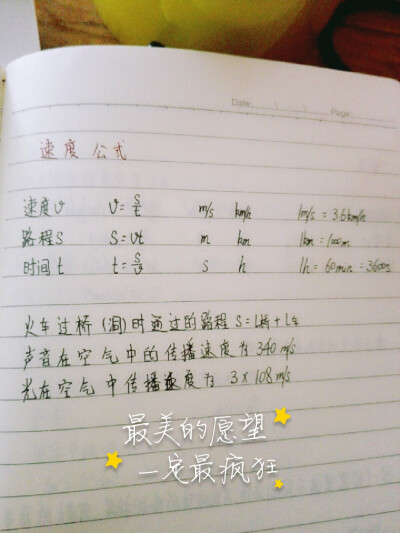 Date: Page:
速度公式
速度v v=s/t m/s km/h 1m/s = 3.6km/h
路程S S=vt m km 1km=1000m
时间t t=s/v s h 1h=60min=3600s
火车过桥(洞)时通过的路程 S=L桥+L车
声音在空气中的传播速度为 340 m/s
光在空气中传播速度为 3×108m/s
最美的愿望
一定最疯狂